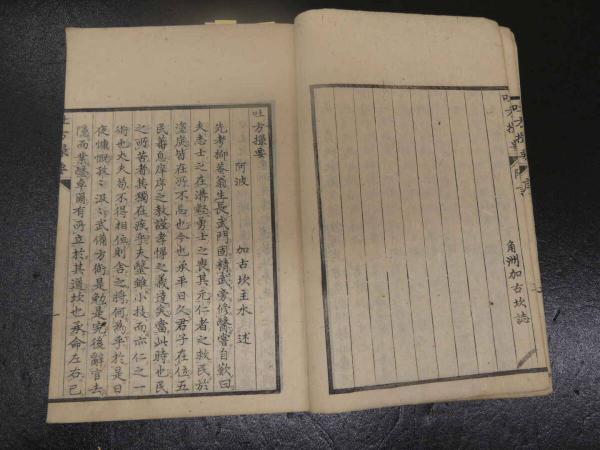 角洲加古坎誌
吐方撮要
阿波　加古坎主水　述
先考抑菴翁生長武門固精武旁修醫嘗自歎曰
夫志士之在溝壑勇士之喪其元仁者之救民於
塗炭皆在所不忌也今也承平日久君子在位五
民蕃息庠序之教謹孝悌之義達矣當此時也民
之所苦者其獨在疾乎夫醫雖小技而亦仁之一
術也丈夫苟不得相位則舍之將何為乎於是日
夜慷慨孜〻汲〻武備方術是勉是究後辭官去
隱而業醫卓爾有所立於其道坎也承命左右已